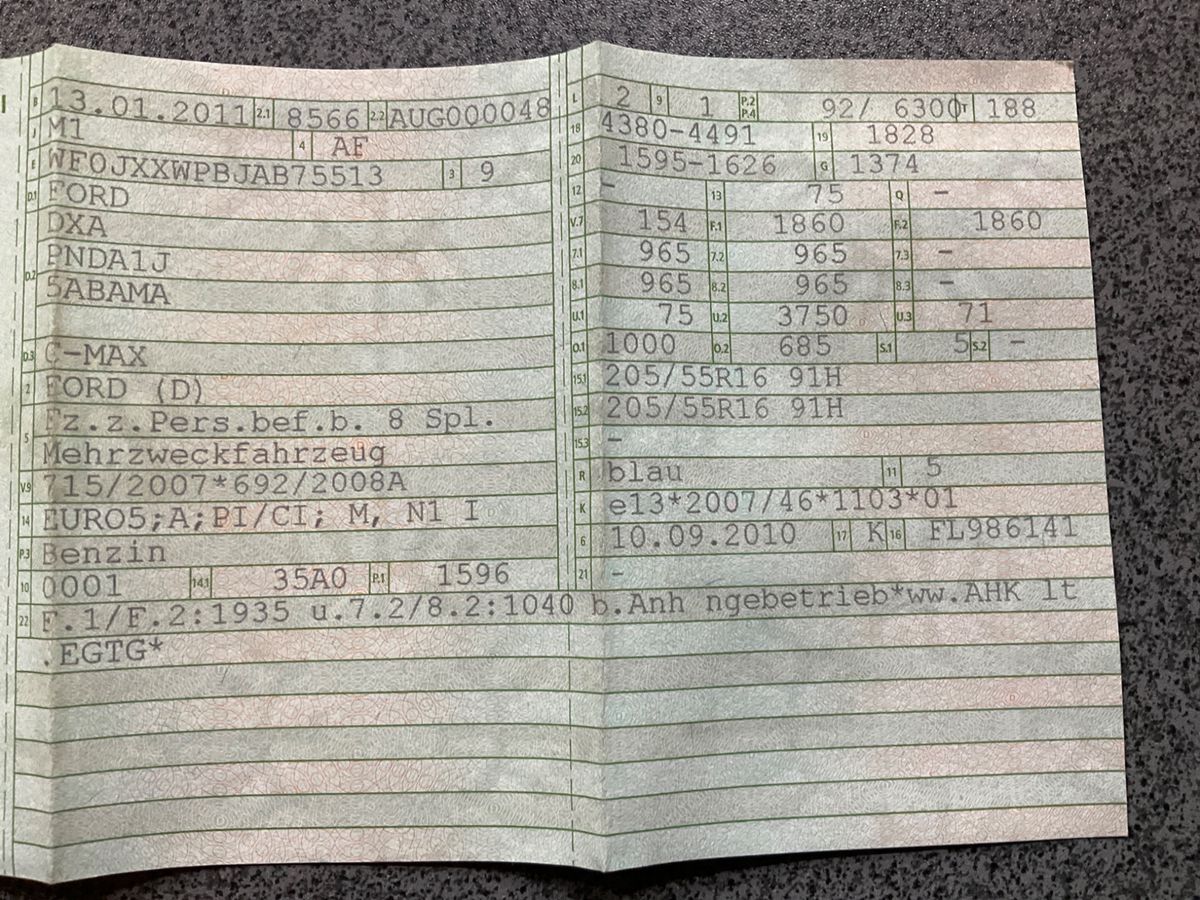 B 13.01.2011 2.1 8566 2.2 AUG000048
J M1 4 AF
E WF0JXXWPBJAB75513 3 9
D.1 FORD
DXA
D.2 PNDA1J
5ABAMA
D.3 C-MAX
2 FORD (D)
5 Fz.z.Pers.bef.b. 8 Spl.
Mehrzweckfahrzeug
V.9 715/2007*692/2008A
14 EURO5;A;PI/CI; M, N1 I
P.3 Benzin
10 0001 14.1 35A0 P.1 1596
L 2 9 1 P.2 P.4 92/ 6300 T 188
18 4380-4491 19 1828
20 1595-1626 G 1374
12 - 13 75 Q -
V.7 154 F.1 1860 F.2 1860
7.1 965 7.2 965 7.3 -
8.1 965 8.2 965 8.3 -
U.1 75 U.2 3750 U.3 71
O.1 1000 O.2 685 S.1 5 S.2 -
15.1 205/55R16 91H
15.2 205/55R16 91H
15.3 -
R blau 11 5
K e13*2007/46*1103*01
6 10.09.2010 17 K 16 FL986141
21 -
22 F.1/F.2:1935 u.7.2/8.2:1040 b.Anh ngebetrieb*ww.AHK lt
.EGTG*